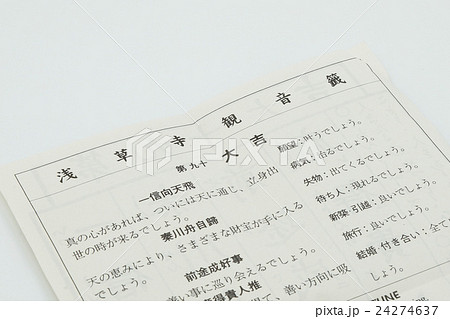 浅草寺観音籤
第九十 大吉
一信向天飛
真の心があれば、ついには天に通じ、立身出
世の時が来るでしょう。
秦川舟自歸
天の恵みにより、さまざまな財宝が手に入る
でしょう。
前途成好事
善い事に巡り会えるでしょう。
得貴人推
て、善い方向に吸
願望：叶うでしょう。
病気：治るでしょう。
失物：出てくるでしょう。
待ち人：現れるでしょう。
新築・引越：良いでしょう。
旅行：良いでしょう。
結婚・付き合い：全て
でしょう。
TUNE
pixta.jp - 24274637